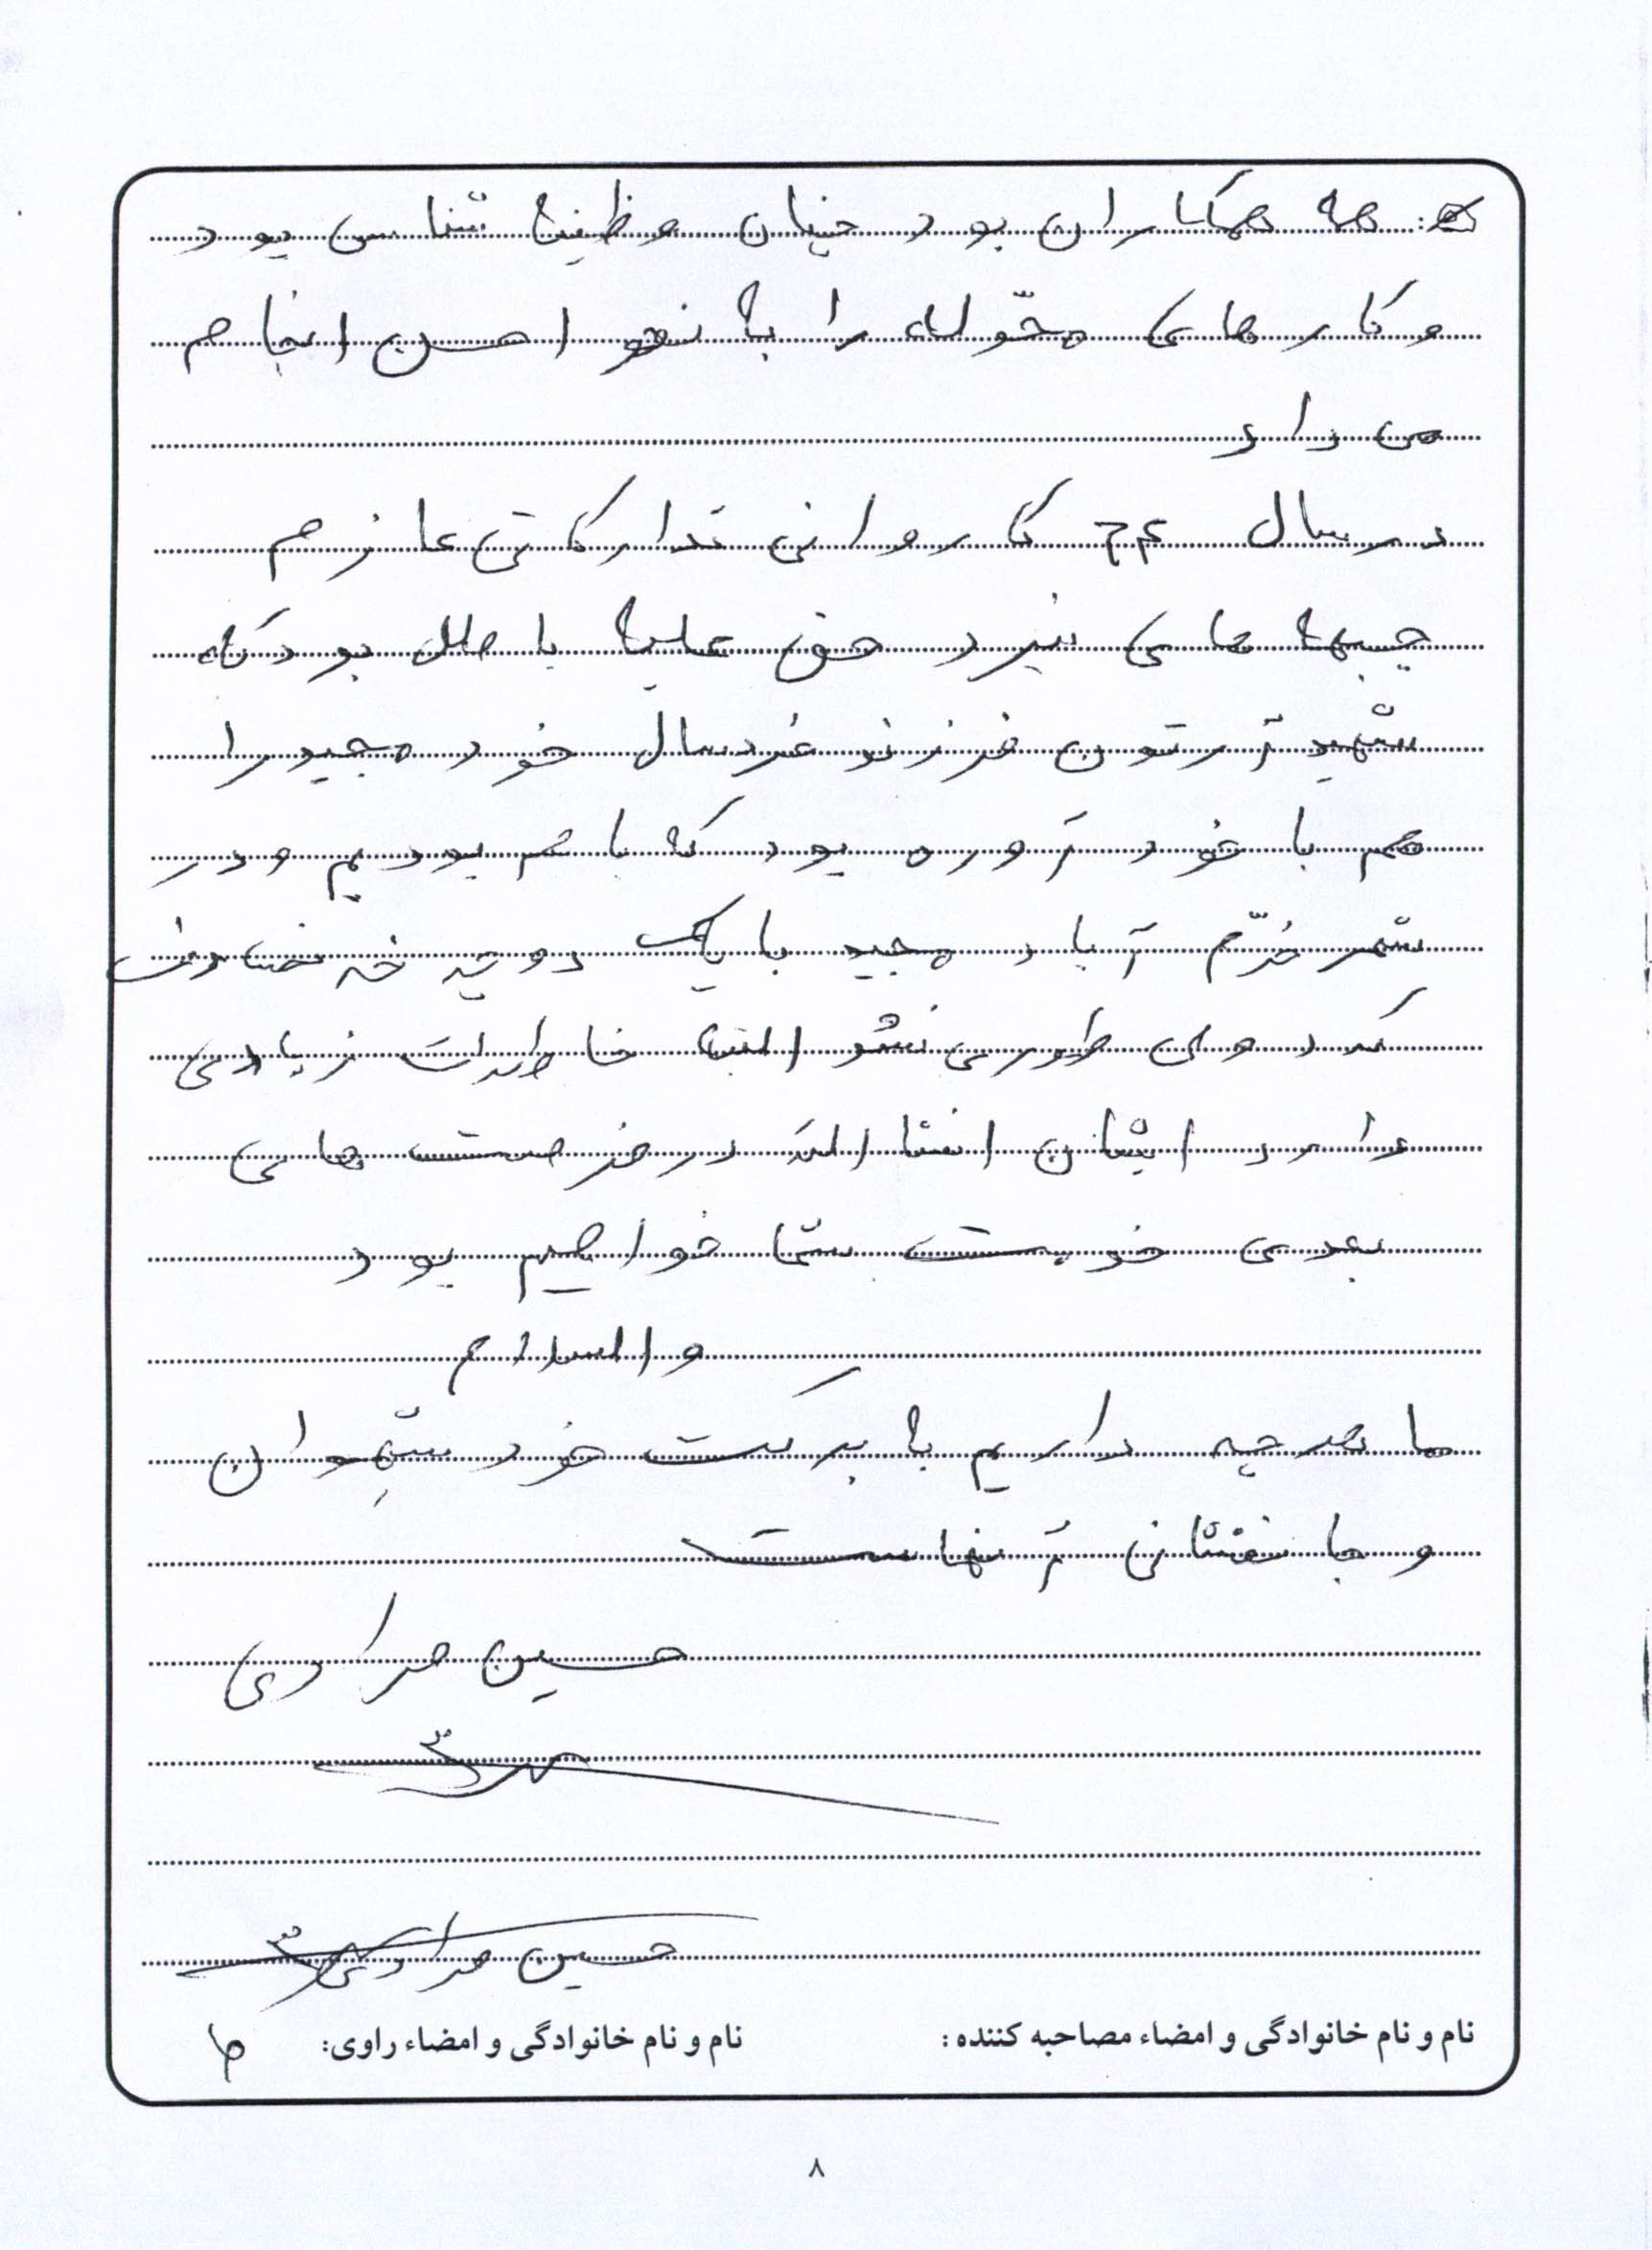 همه همکاران بود چنان وظیفه شناس بود
و کارهای محوّله را به نحو احسن انجام
می داد
در سال ۶۲ کاروانی تدارکاتی عازم
جبهه های نبرد حق علیه باطل بود که
شهید آرتون فرزند خردسال خود مجید را
هم با خود آورده بود که باهم بودیم و در
شهر خُرّم آباد مجید با یک دوچرخه تصادف
کرد ولی طوری نشد البته خاطرات زیادی
دارد ایشان انشاالله در فرصت هایی
بعدی خدمت شما خواهیم بود
والسلام
ما هر چه داریم به برکت خود شهِدان
و جانفشانی آنهاست
حسین مرادی
حسین مرادی
نام و نام خانوادگی و امضاء مصاحبه کننده: نام و نام خانوادگی و امضاء راوی:
۸